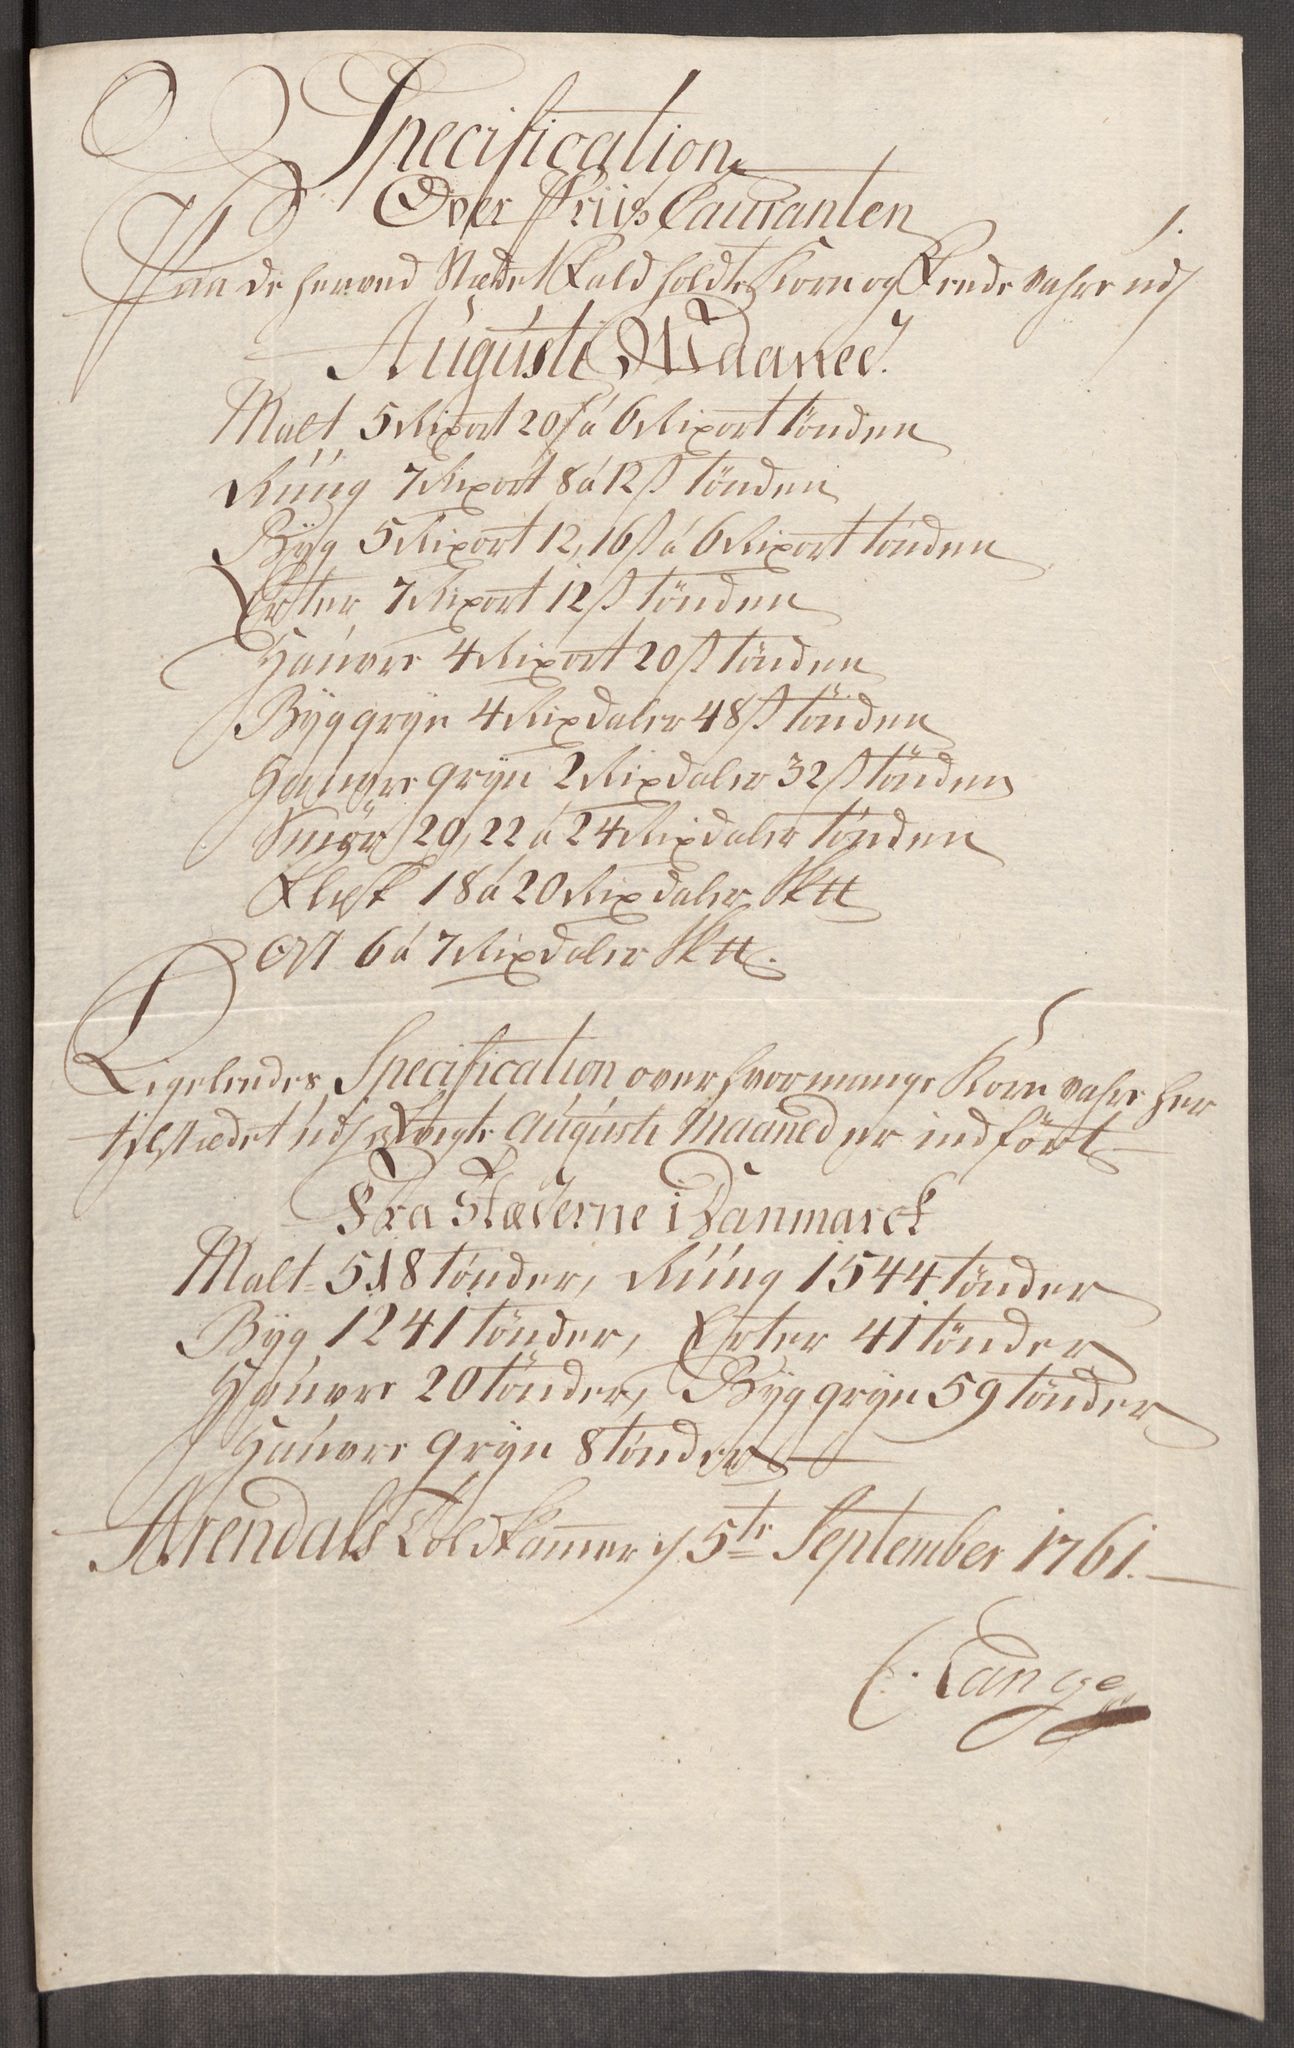 Specification
Over Priis Couranten
Paa de herved Stædet fald holdte Korn og Fede vahre udj
Augusti Maaned.
Malt 5 Rixort 20 ß á 6 Rixort tönden
Rúúg 7 Rixort 8 á 12 ß tönden
Byg 5 Rixort 12, 16 ß á 6 Rixort tönden
Erter 7 Rixort 12 ß tönden
Haúvre 4 Rixort 20 ß tönden
Byggryn 4 Rixdaler 48 ß tönden
Haúvregryn 2 Rixdaler 32 ß tönden
Smör 20, 22 á 24 Rixdaler tönden
Flesk 18 á 20 Rixdaler Sktt
Ost 6 á 7 Rixdaler Sktt.
Ligeledes Specification over hvormange Korn vahre her
til Stædet udj Augústi Maaned er indfört
Fra Stæderne i Danmarck
Malt 518 tönder, Rúúg 1544 tönder
Byg 1241 tönder, Erter 41 tönder
Haúvre 20 tönder, Byggryn 59 tönder
Haúvre gryn 8 tönder
Arendals Toldkammer 5te September 1761.
C. Lange